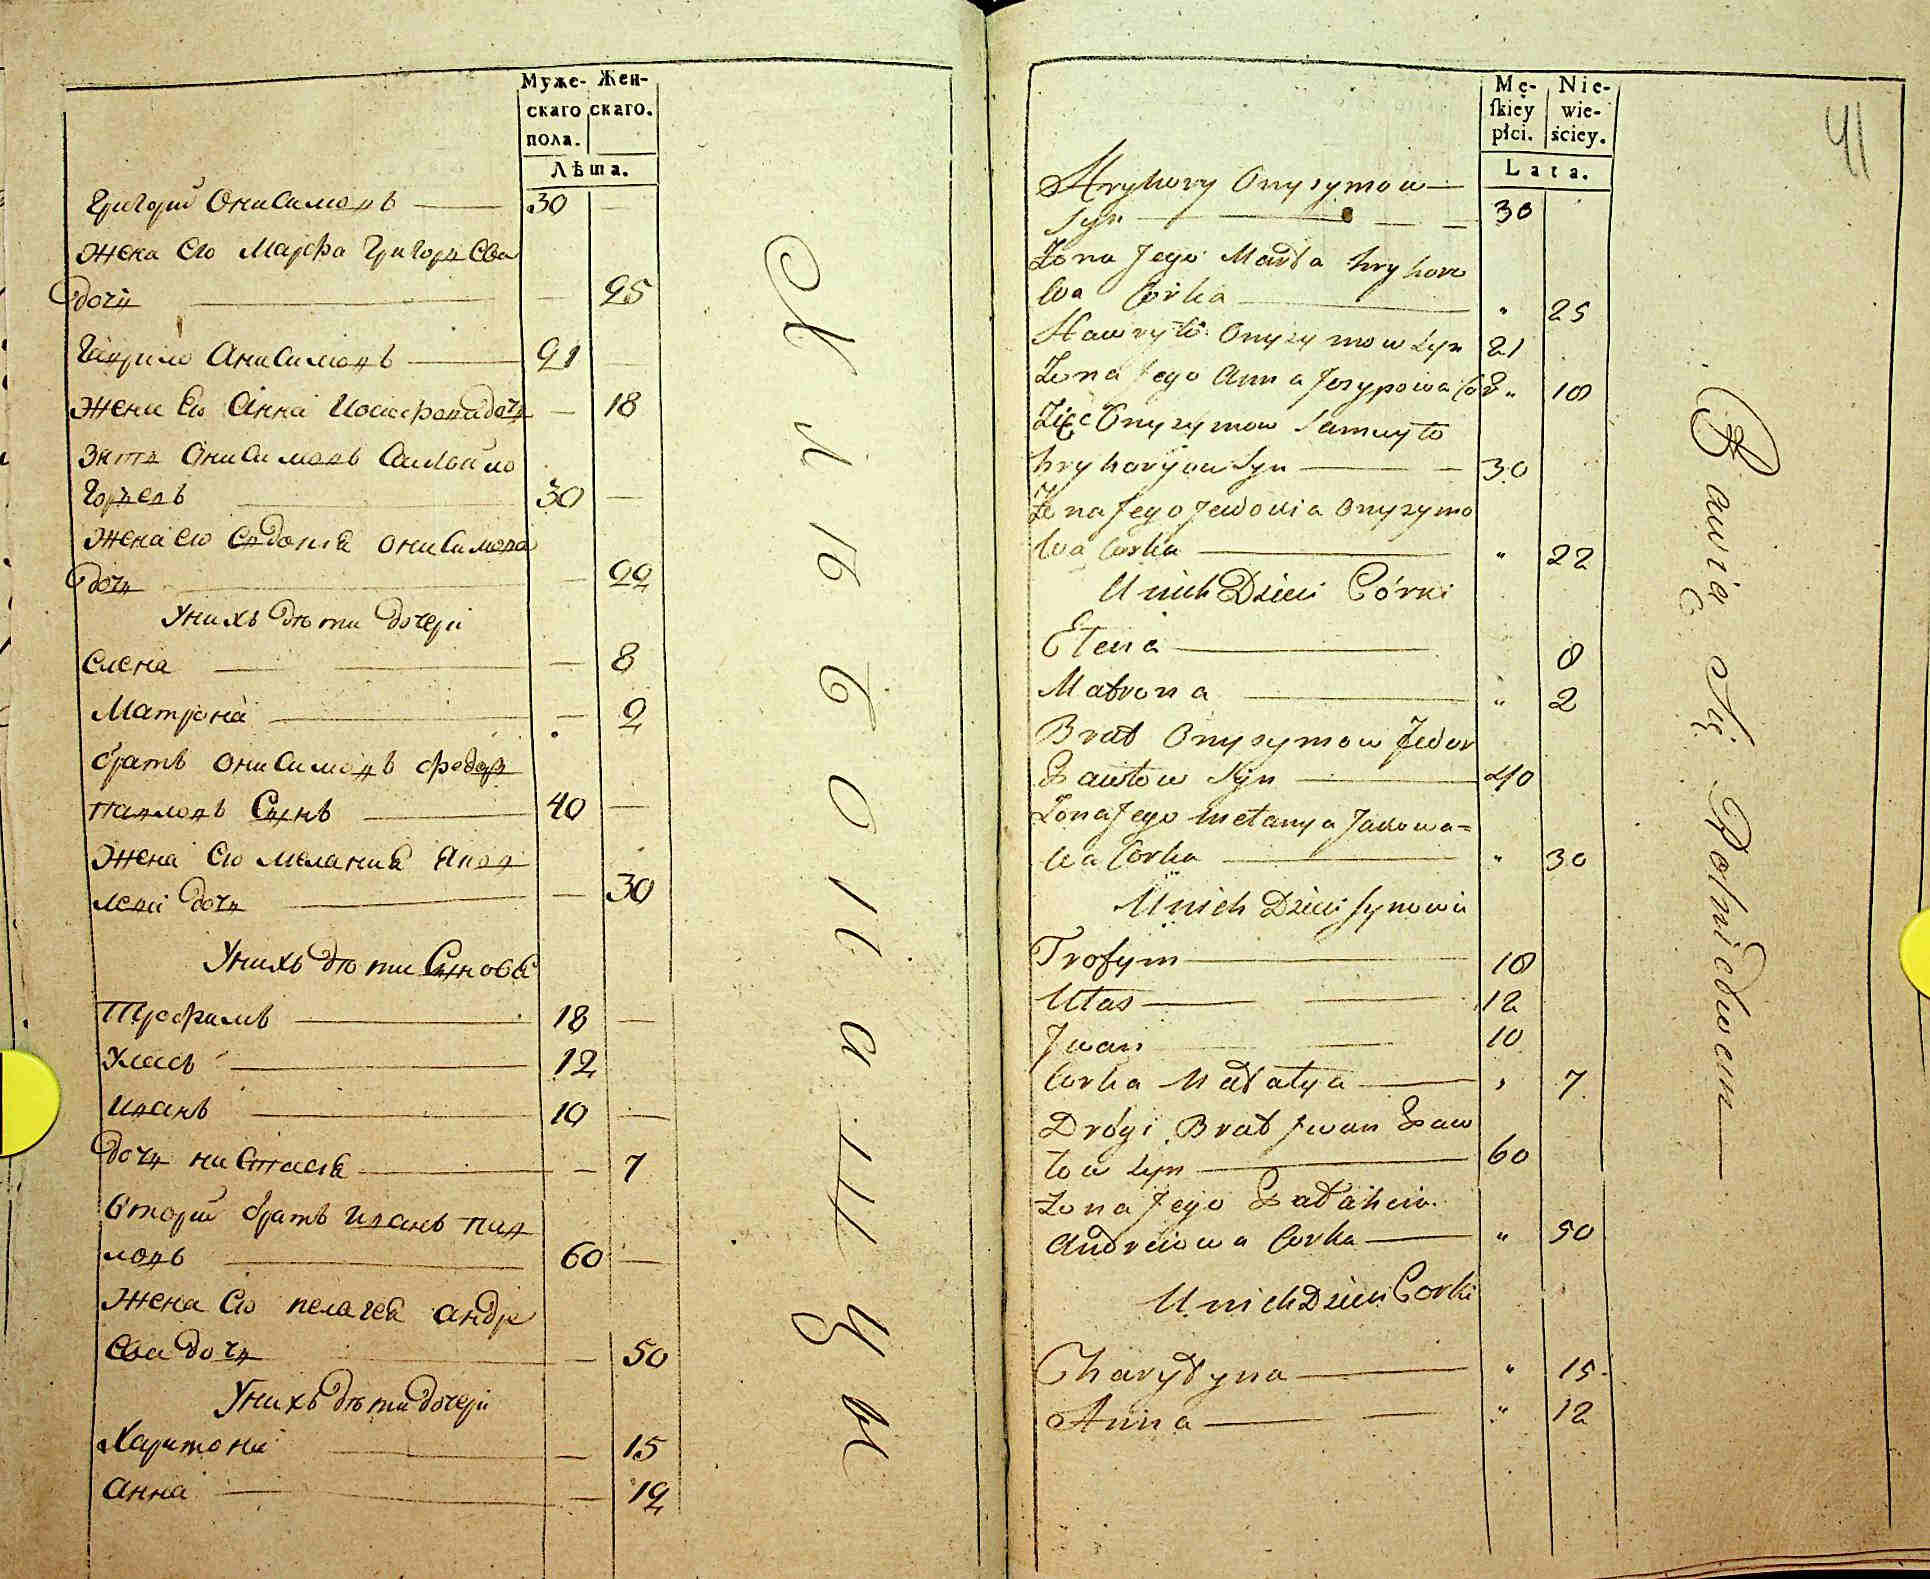 Муже- Жен-
скаго скаго.
пола.
Лѣта.
Григорій Онисимовъ 30
Жена Его Марфа Григорьева
дочь 25
Гаврило Анисимовъ 21
Жена Ею Анна Иосифова дочь 18
Зять Онисимовъ Самойло
30
жена ею Евдокія Онисимова
дочь 22
У нихъ дѣти дочери
Елена 8
Матрона 2
братъ Онисимовъ федоръ
павловъ Сынъ 40
Жена Ею меланія Яков
лева дочь 30
У нихъ дѣти Сыновья
Трофимъ 18
Уласъ 12
Иванъ 10
дочь настасія 7
Вторый братъ Иванъ пав
ловъ 60
Жена Ею пелагея андре
ева дочь 50
У нихъ дѣти дочери
Харитона 15
анна 12
Хлѣбопашцы
41
Mę- Nie-
ſkiey wie-
płci. ściey.
Lata.
Hryhory Onysymow
Syn 30
Żona Jego Marta hryhoro
wa Córka " 25
Hawryło Onysymow Syn 21
Żona Jego Anna Josypowa Cor " 18
Zięć Onyzymow Samuyło
hryhoryow Syn 30
Żona Jego Jewdokia Onyzymo
wa Corka " 22
U nich Dzieci Córki
Elena 8
Matrona " 2
Brat Onyzymow Fedor
Pawłow Syn 40
Żona Jego Melanya Jakowa=
wa Corka " 30
U nich Dzieci Synowie
Trofym 18
Ułas 12
Jwan 10
Corka Natalya " 7
Drógi Brat Jwan Paw
łow Syn 60
Żona Jego Palaheia
Andreiowa Corka " 50
U nich Dzieci Corki
Charytyna " 15
Anna " 12
Bawią Się Rolnictwem